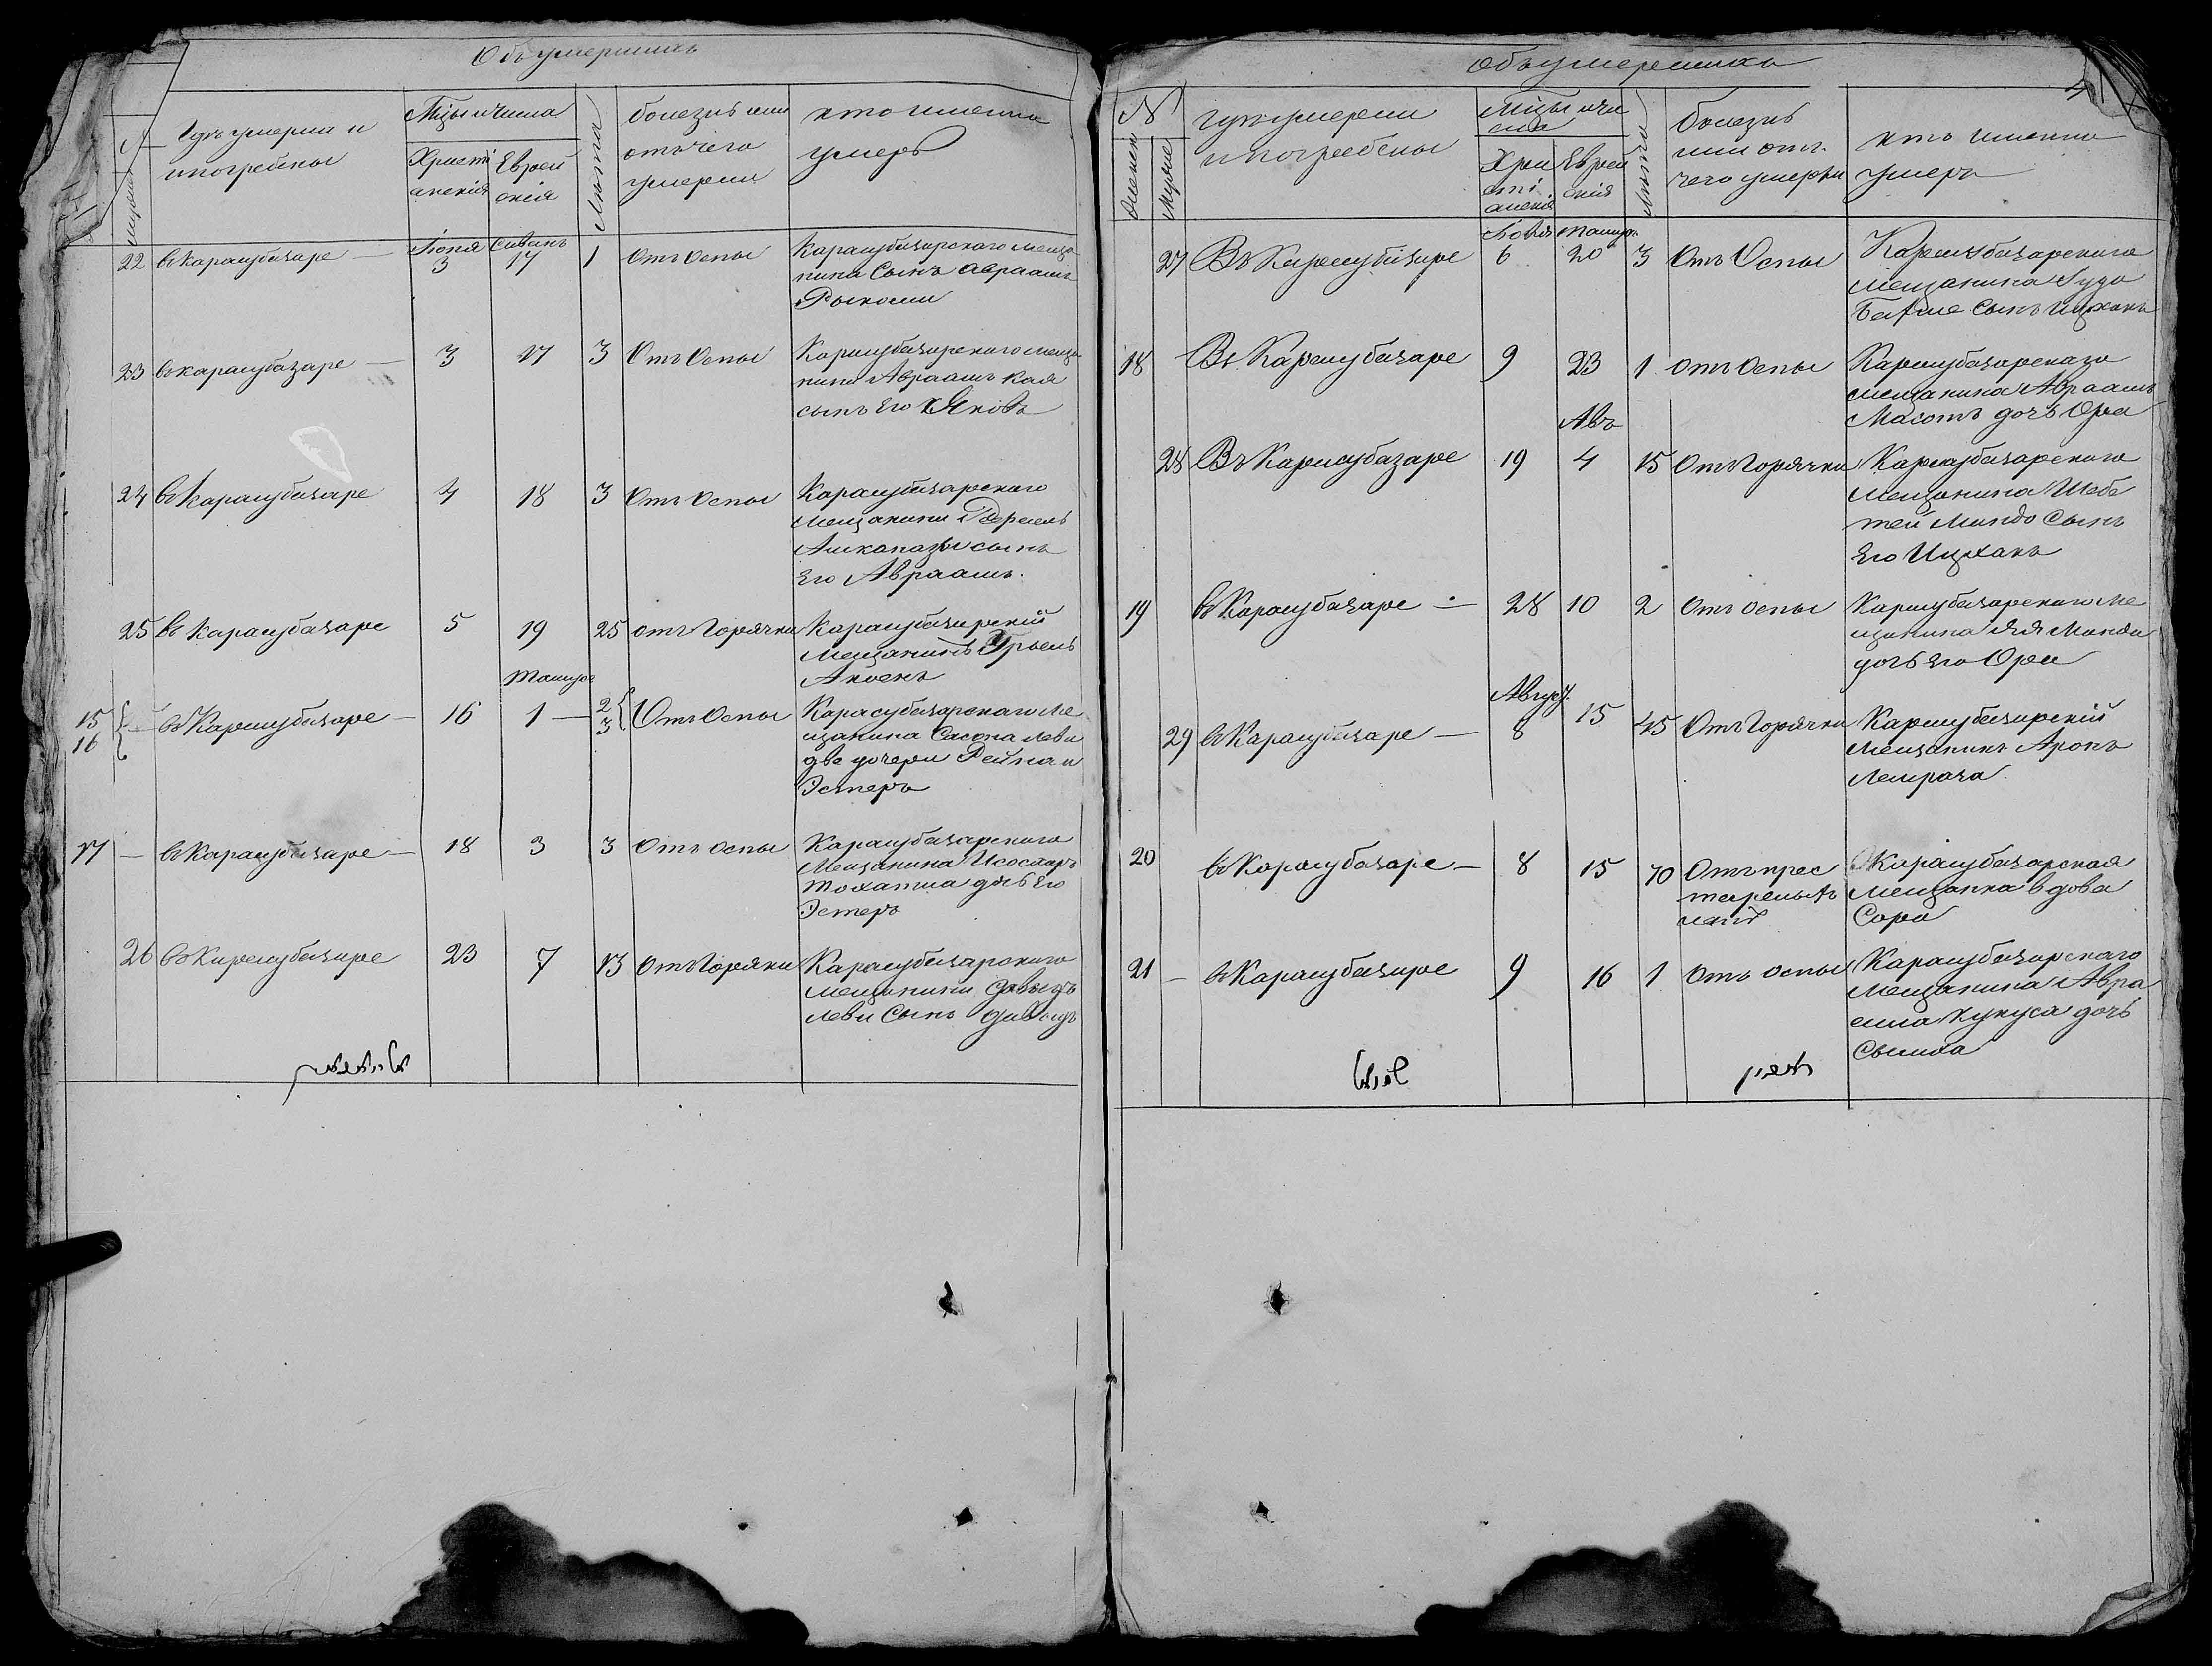 Объ умершихъ
№ Гдѣ умерли и
и погребены
Мцы и числа
Христі
анскія
Еврей
скія
Лѣта
болезнь или
отъ чего
умерли
кто именно
умеръ
22 въ карасубазаре — Іюня 3 Сиванъ 17 1 Отъ Оспы Карасубазарскаго меща
нина Сынъ Авраамъ
23 въ карасубазаре — 3 17 3 Отъ Оспы Карасубазарскаго меща
нина Авраамъ Кая
сынъ Его Яковъ
24 въ Карасубазаре 4 18 3 Отъ Оспы Карасубазарскаго
мещанина
Ашканазы сынъ
Его Авраамъ.
25 въ Карасубазаре 5 19 25 отъ Горячки Карасубазарскій
Мещанинъ
Тамузъ
15
16 въ Карасубазаре — 16 1 — 2
3 Отъ Оспы Карасубазарскаго Ме
щанина Сасона Леви
две дочери Рейна и
Эстеръ
17 — въ Карасубазаре — 18 3 3 Отъ оспы Карасубазарскаго
Мещанина
дочь Его
Эстеръ
26 въ Карасубазаре 23 7 13 Отъ Горячки Карасубазарскаго
Мещанина Давыдъ
Леви Сынъ
Объ умершихъ
4
№
Женск
Мужие
гдѣ умерли
и погребены
Мцы и чи
сла
Хри
сті
анскія
Еврей
скія
Лѣта
Болезнь
или отъ
чего умерли
кто именно
умеръ
27 Въ Карасубазаре Іюля 6 Тамузъ 20 3 Отъ Оспы Карасубазарскаго
Мещанина Іуда
сынъ Ицхакъ
18 Въ Карасубазаре 9 23 1 Отъ Оспы Карасубазарскаго
мещанина Авраамъ
дочь Ора
Авъ
28 Въ Карасубазаре 19 4 15 Отъ Горячки Карасубазарскаго
Мещанина Шебе
тей Миндо Сынъ
Его Ицхакъ
19 въ Карасубазаре — 28 10 2 Отъ оспы Карасубазарскаго Ме
щанина
дочь Его Ора
Август.
29 въ Карасубазаре — 8 15 45 Отъ Горячки Карасубазарскій
Мещанинъ Аронъ
20 въ Карасубазаре — 8 15 70 Отъ прес
тарелыхъ
летъ Карасубазарская
Мещанка вдова
Сара
21 — въ Карасубазаре 9 16 1 Отъ оспы Карасубазарскаго
Мещанина Авра
ама Кукуса дочь